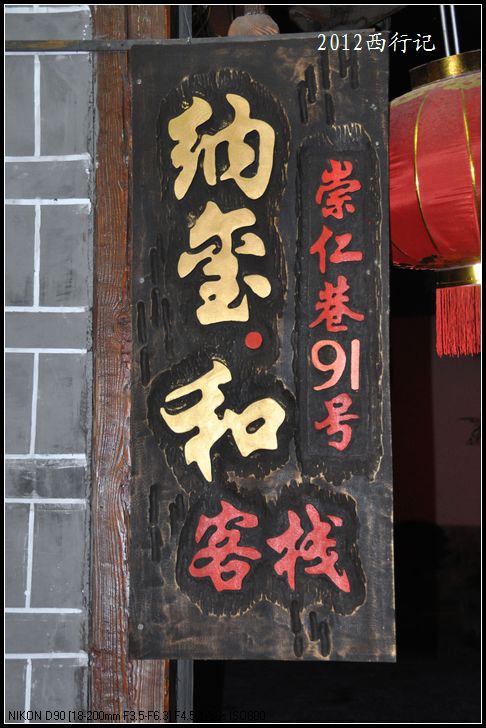 2012西行记
纳玺·和
客栈
崇仁巷91号
NIKON D90 [18-200mm F3.5-F6.3] F4.5
ISO800